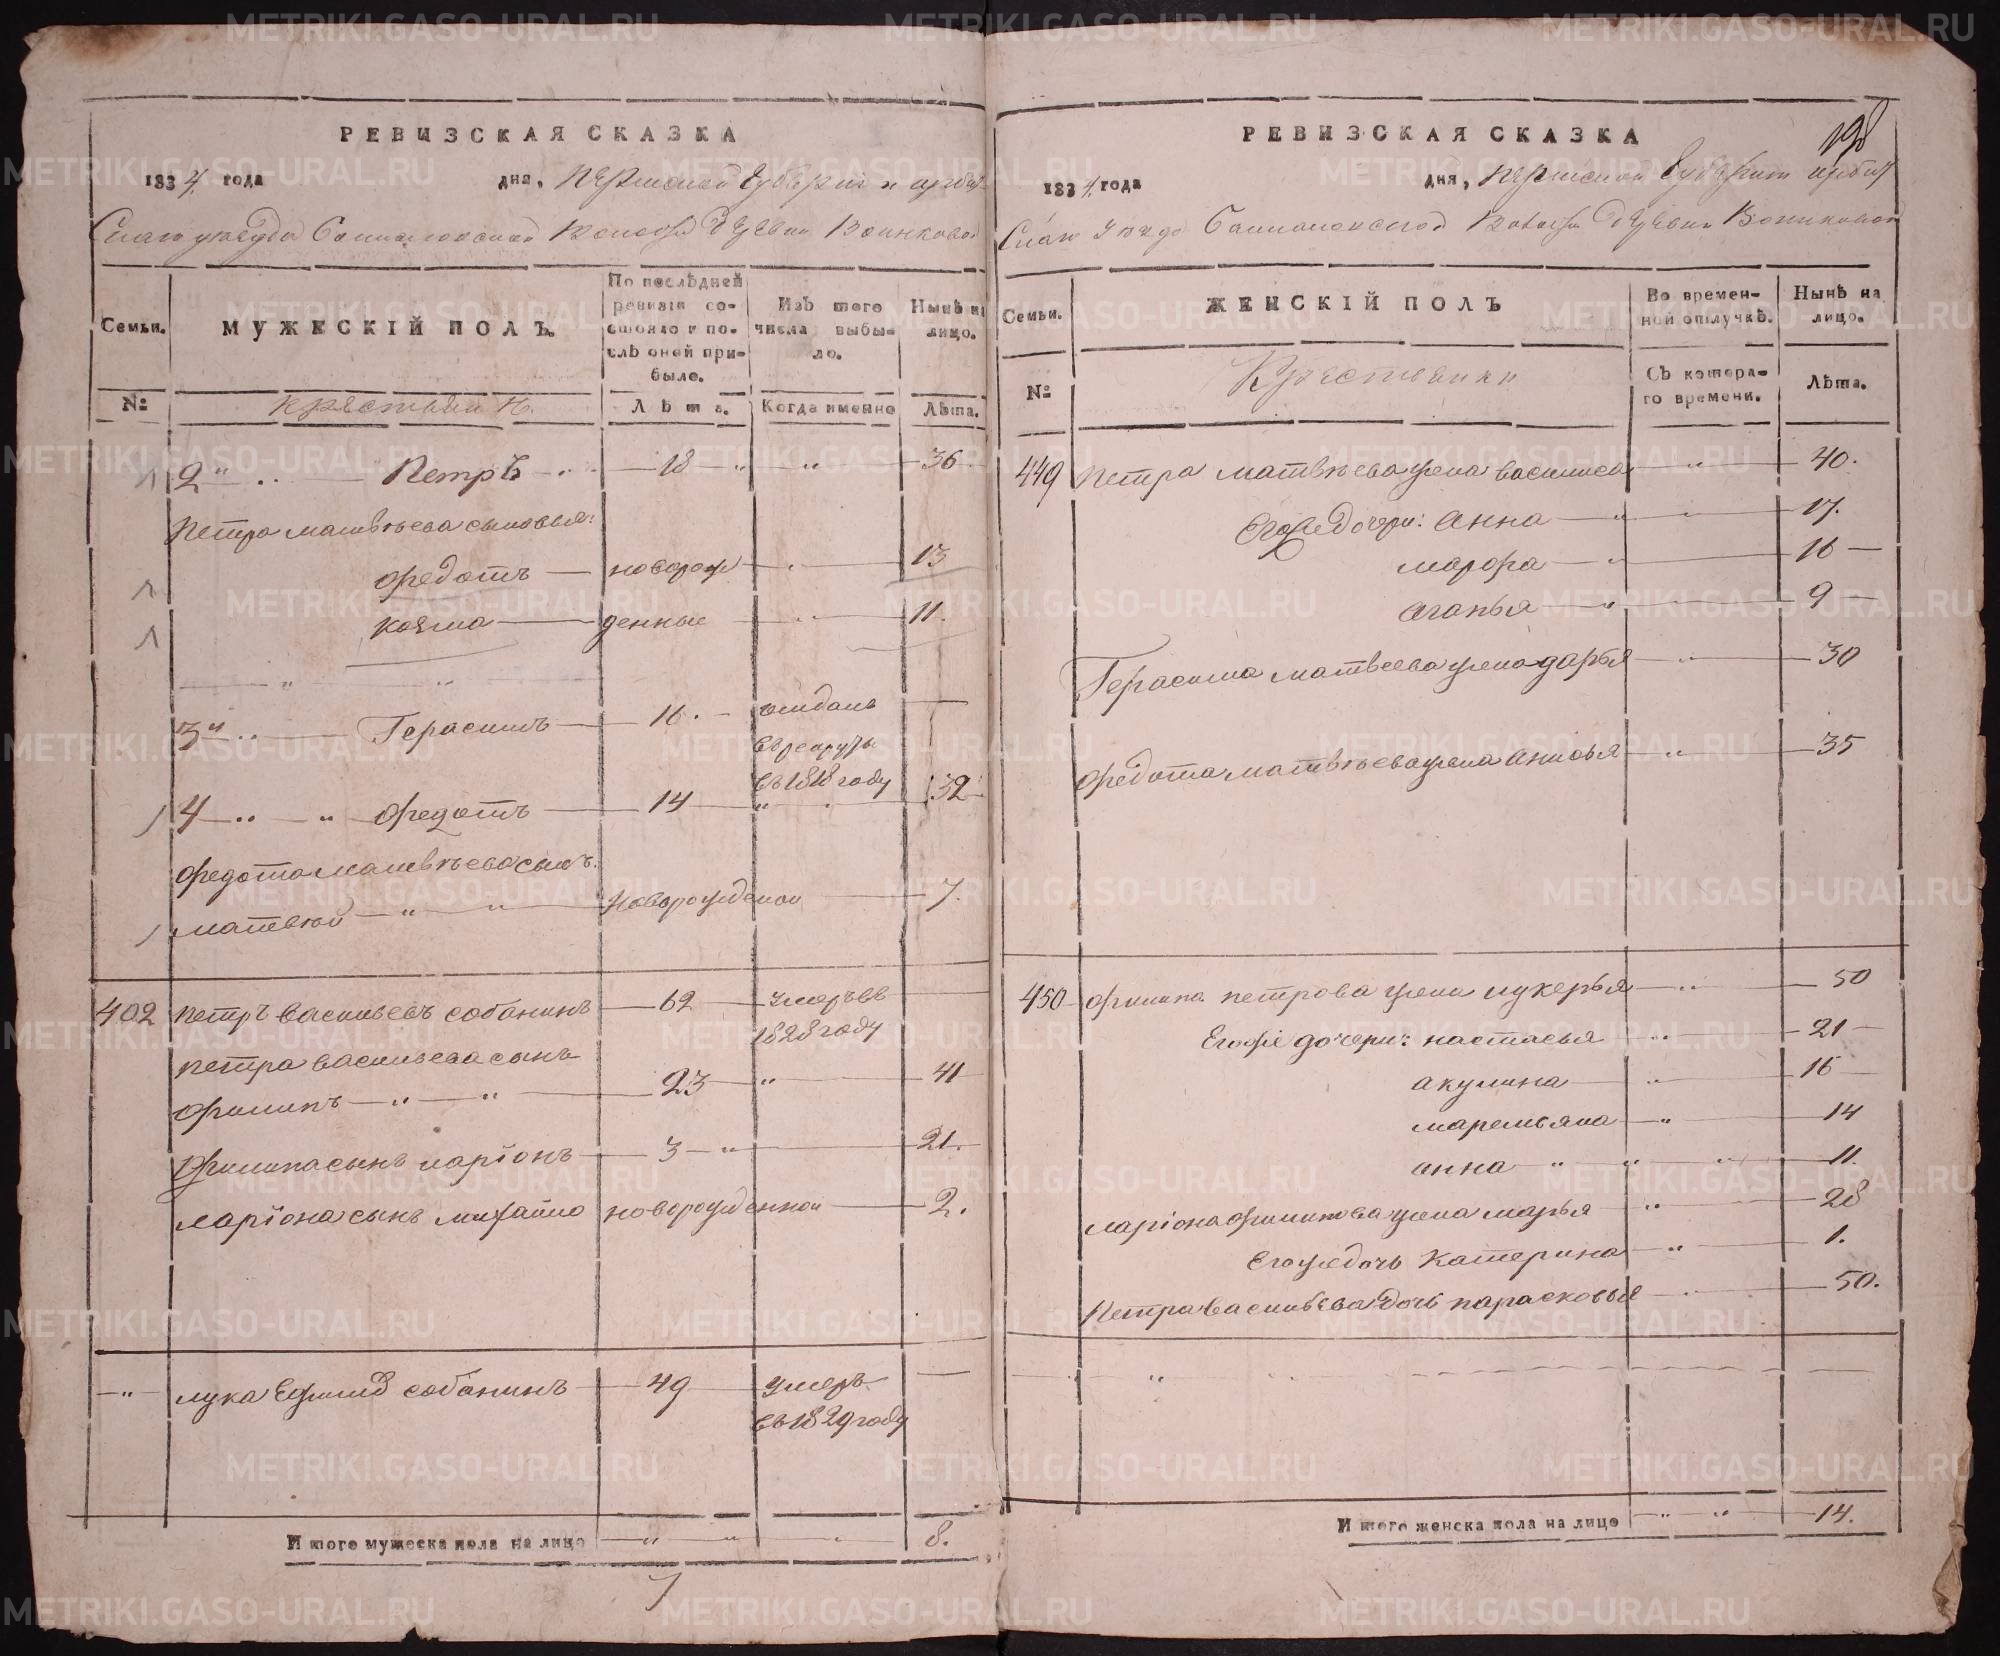 РЕВИЗСКАЯ СКАЗКА
1834 года дня, Пермской Губернии ирбит
Скаго уезда Волости Деревни
Семьи.
МУЖЕСКІЙ ПОЛЪ.
По послѣдней ревизіи состояло и послѣ оней прибыло.
Изъ того числа выбыло.
Нынѣ на лицо.
№
крестьяни
Лѣта.
Когда именно
Лѣта.
2й Петръ 18 36
Петра матвѣева сыновья:
Федотъ новорож 13
козма денные 11.
3й Герасимъ 16. отдань
в рекруты
въ 1818 году
4 Федотъ 14 32
Федота матвѣева сынъ
матвей новорожденои 7.
402 петръ васильевъ собанинъ 62 умеръ въ
1828 году
петра васильева сынъ
Филипъ 23 41
Филипа сынъ ларіонъ 3 21.
ларіона сынъ михайло новорожденнои 2.
лука собанинъ 49 умеръ
въ 1829 году
И того мужеска пола на лицо 8.
РЕВИЗСКАЯ СКАЗКА
198
1834 года дня, Пермской Губернии ирбит
Скаго уезда Волости Деревни
Семьи.
ЖЕНСКІЙ ПОЛЪ
Во временной отлучкѣ.
Нынѣ на лицо.
№
Съ котораго времени.
Лѣта.
449 Петра матвѣева жена василиса 40.
Егоже дочери: анна 17.
марфа 16
агапья 9
Герасима матвеева жена дарья 30
Федота матвѣева жена 35
450 Филипа петрова жена лукерья 50
Егоже дочери: настасья 21
акулина 16
маремьяна 14
анна 11.
ларіона филипова жена марья 28
Егоже дочь Катерина 1.
Петра васильева дочь парасковья 50.
И того женска пола на лицо 14.
METRIKI.GASO-URAL.RU